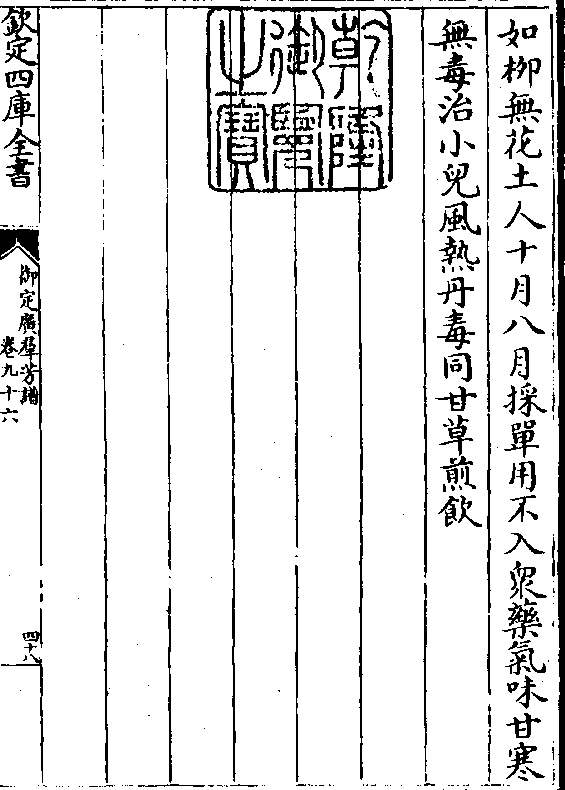 如柳無花土人十月八月採單用不入衆藥氣味甘寒
無毒治小兒風熱丹毒同甘草煎飲
乾隆御覽之寶
欽定四庫全書
御定廣羣芳譜
卷九十六
四十八